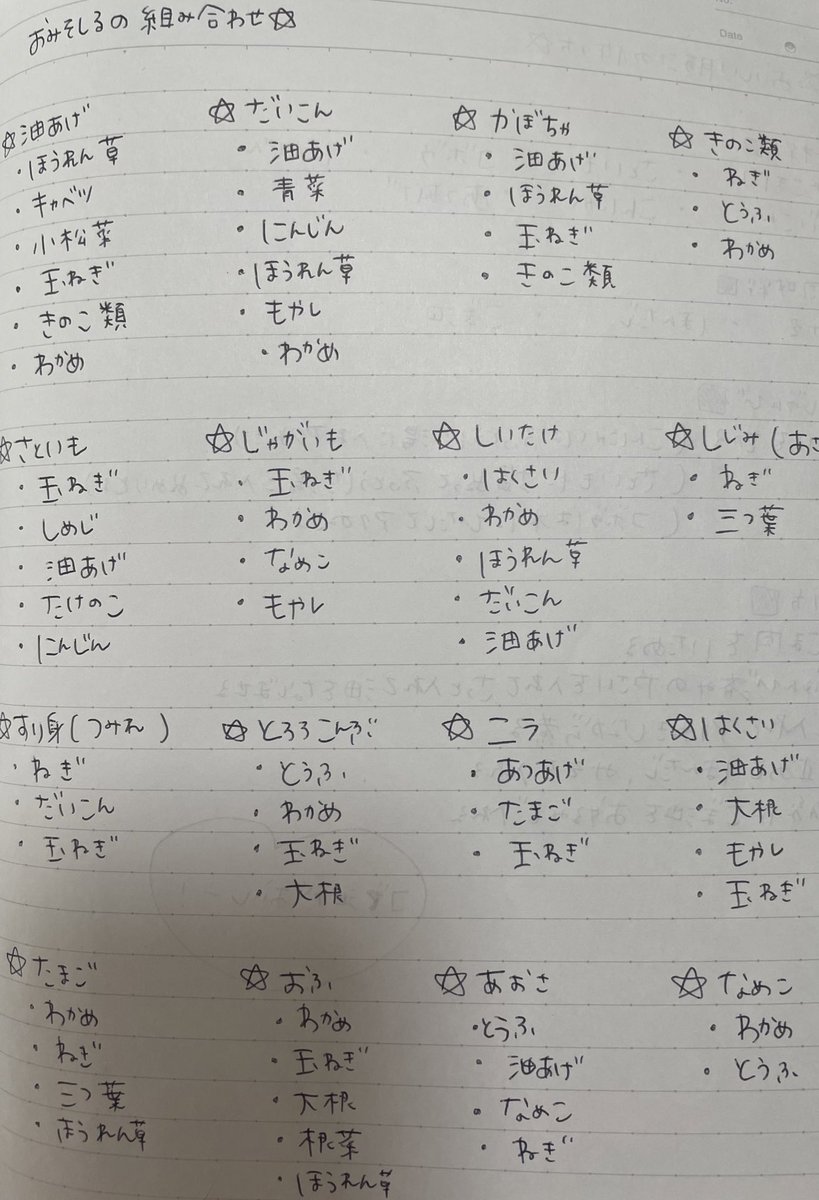 おみそしるの 組み合わせ☆
Date
☆油あげ
・ほうれん草
・キャベツ
・小松菜
・玉ねぎ
・きのこ類
・わかめ
☆だいこん
・油あげ
・青菜
・にんじん
・ほうれん草
・もやし
・わかめ
☆かぼちゃ
・油あげ
・ほうれん草
・玉ねぎ
・きのこ類
☆きのこ類
・ねぎ
・とうふ
・わかめ
☆さといも
・玉ねぎ
・しめじ
・油あげ
・たけのこ
・にんじん
☆じゃがいも
・玉ねぎ
・わかめ
・なめこ
・もやし
☆しいたけ
・はくさい
・わかめ
・ほうれん草
・だいこん
・油あげ
☆しじみ(あさ
・ねぎ
・三つ葉
☆すり身(つみれ)
・ねぎ
・だいこん
・玉ねぎ
☆とろろこんぶ
・とうふ
・わかめ
・玉ねぎ
・大根
☆ニラ
・あつあげ
・たまご
・玉ねぎ
☆はくさい
・油あげ
・大根
・もやし
・玉ねぎ
☆たまご
・わかめ
・ねぎ
・三つ葉
・ほうれん草
☆おふ
・わかめ
・玉ねぎ
・大根
・根菜
・ほうれん草
☆あおさ
・とうふ
・油あげ
・なめこ
・ねぎ
☆なめこ
・わかめ
・とうふ